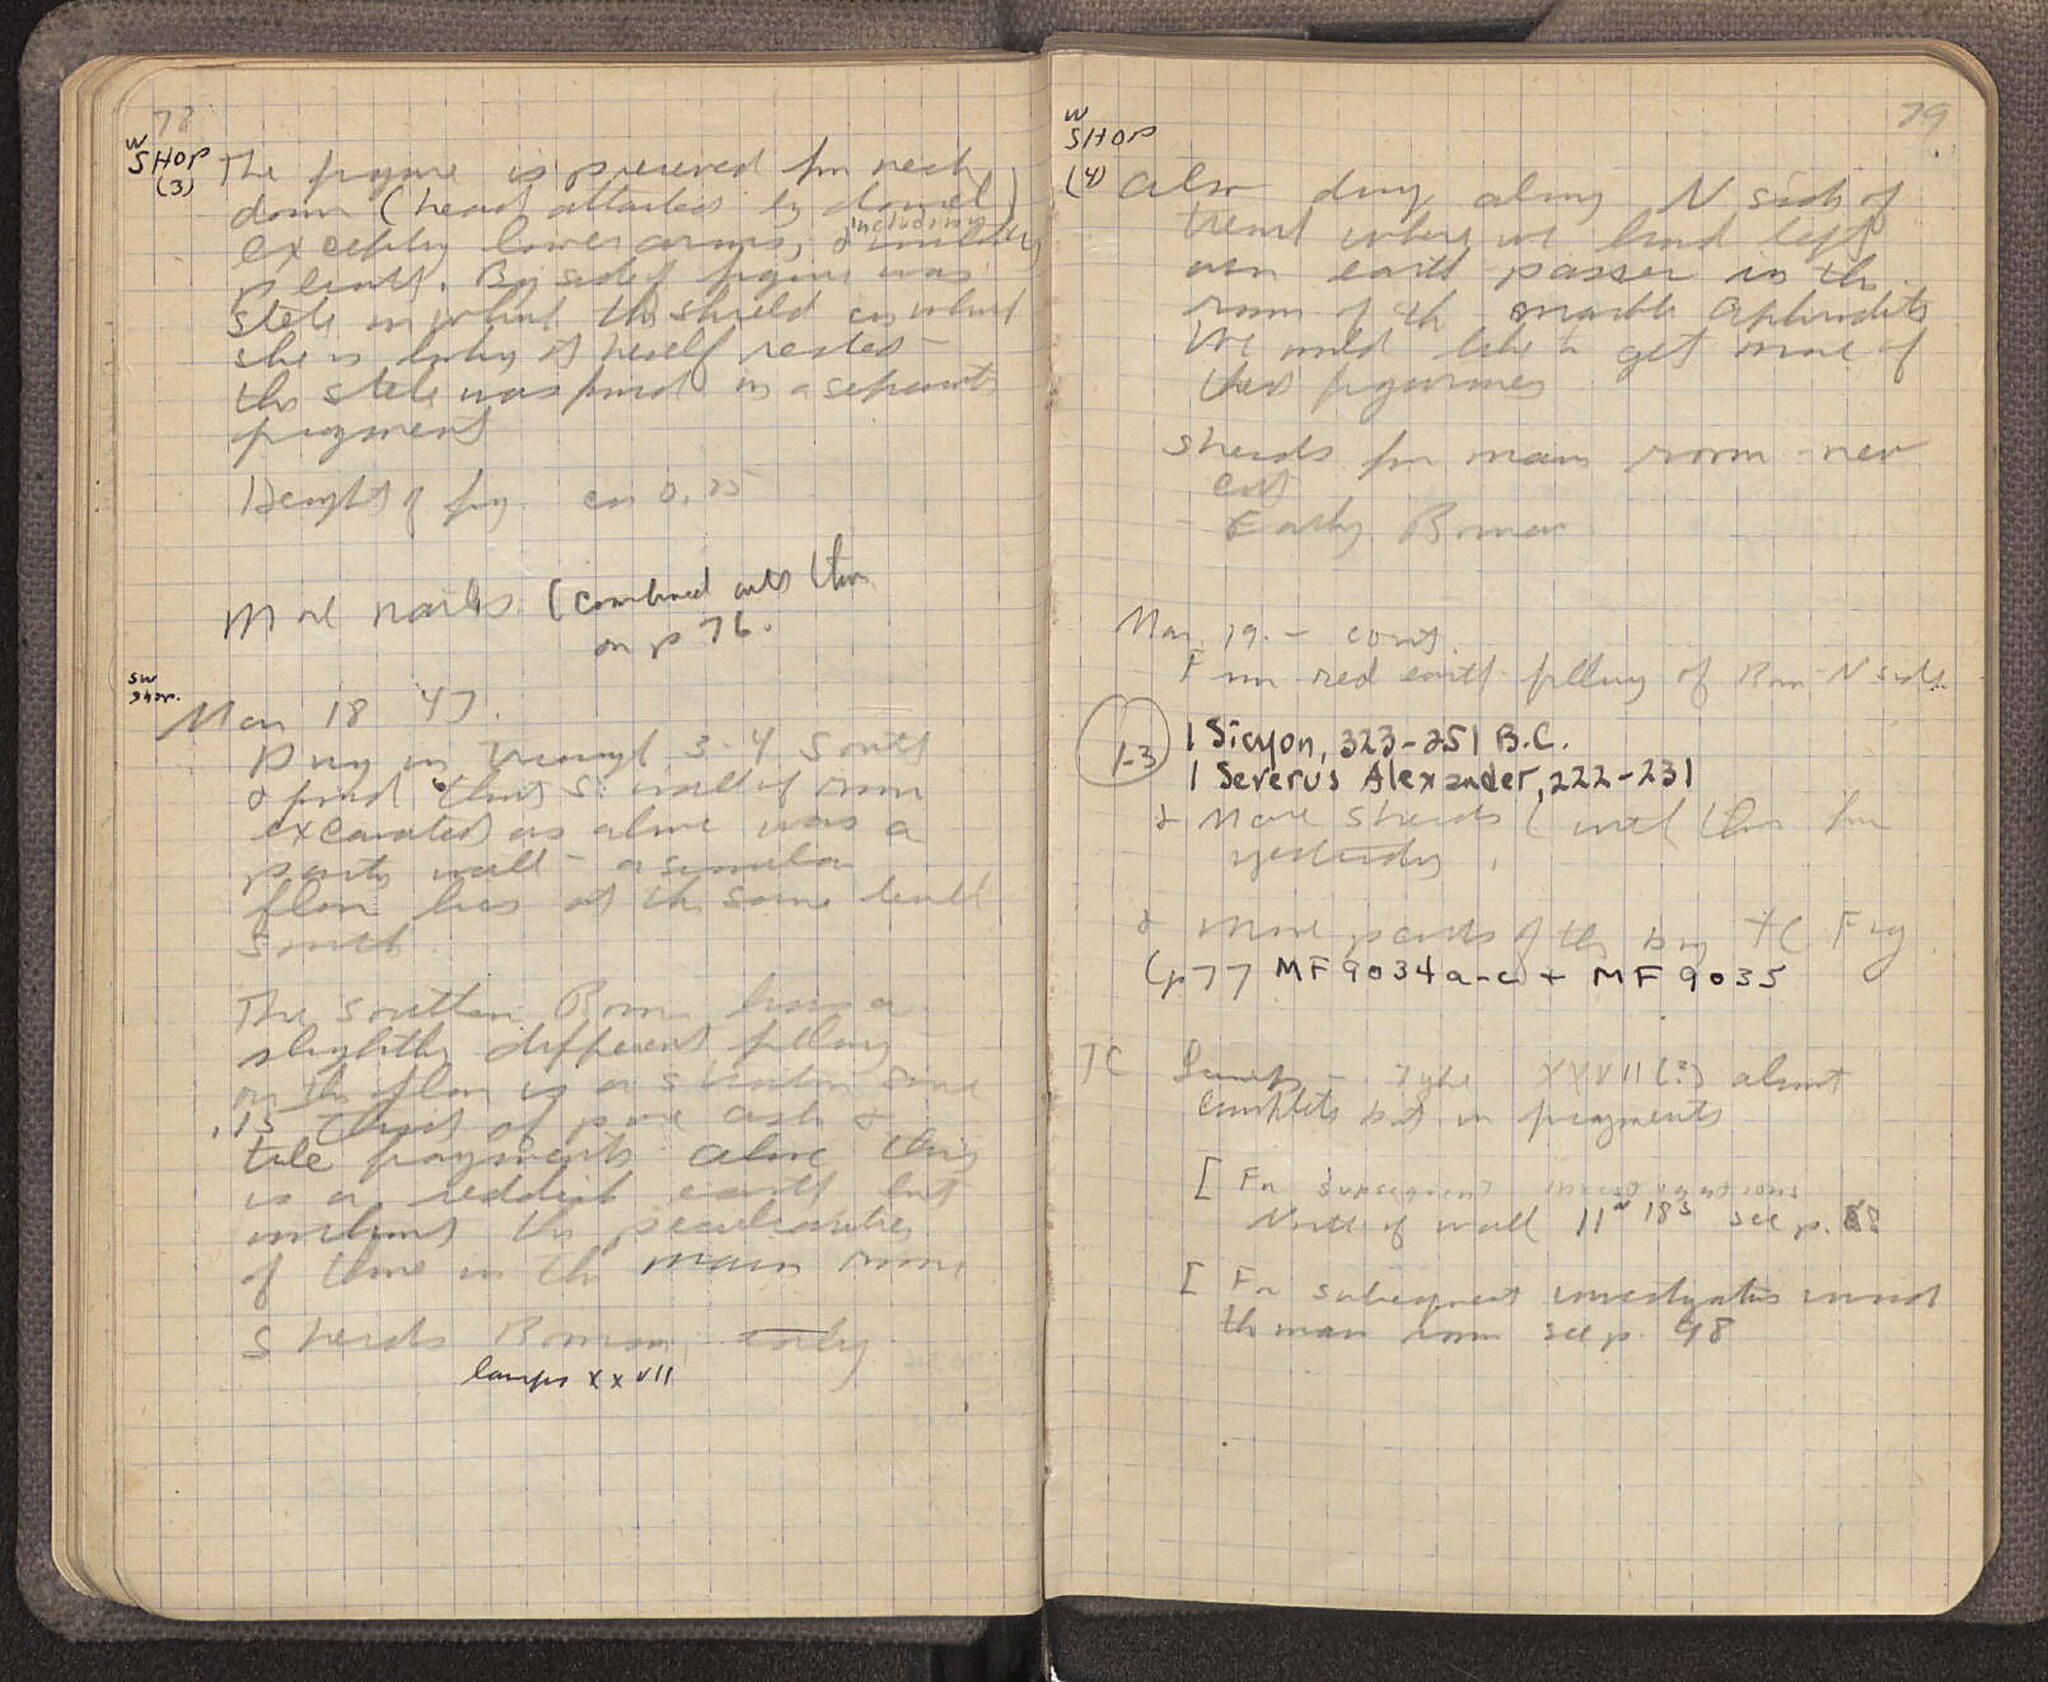 78
W
SHOP
(3)
The figure is preserved from neck
down (head attached by dowel)
excepting lower arms, & including
plinth. By side of figure was
Stele on which the shield in which
she is looking at herself rested -
this stele was found in a separate
fragment
Height of fig. ca 0.25
More nails (combined with those
on p 76.
SW
Shop.
Mar 18 47.
Dug in through 3-4 South
& found that S. wall of room
excavated as above was a
party wall - a similar
floor lies at the same level
south.
The southern Room has a
slightly different filling
on the floor is a stratum some
.15 thick of pure ash &
tile fragments above this
is a reddish earth but
without the peculiarities
of those in the main room
Sherds Roman, early
lamps XXVII
79
W
SHOP
(4)
Also dug along N side of
trench where we had left
an earth passer in the
room of the marble Aphrodite
We would like to get more of
these figurines
Sherds from main room - new
cut
- Early Roman
Mar. 19. - cont.
From red earth filling of Rm N side.
1-3
1 Sicyon, 323-251 B.C.
1 Severus Alexander, 222-231
& More sherds (with those from
yesterday.
& more parts of the big TC Fig
(p 77 MF 9034a-c + MF 9035
TC Lamp - Type XXVII(?) almost
complete but in fragments
[ For subsequent investigations
North of wall 11N 18S see p. 88
[ For subsequent investigations under
the main room see p. 98